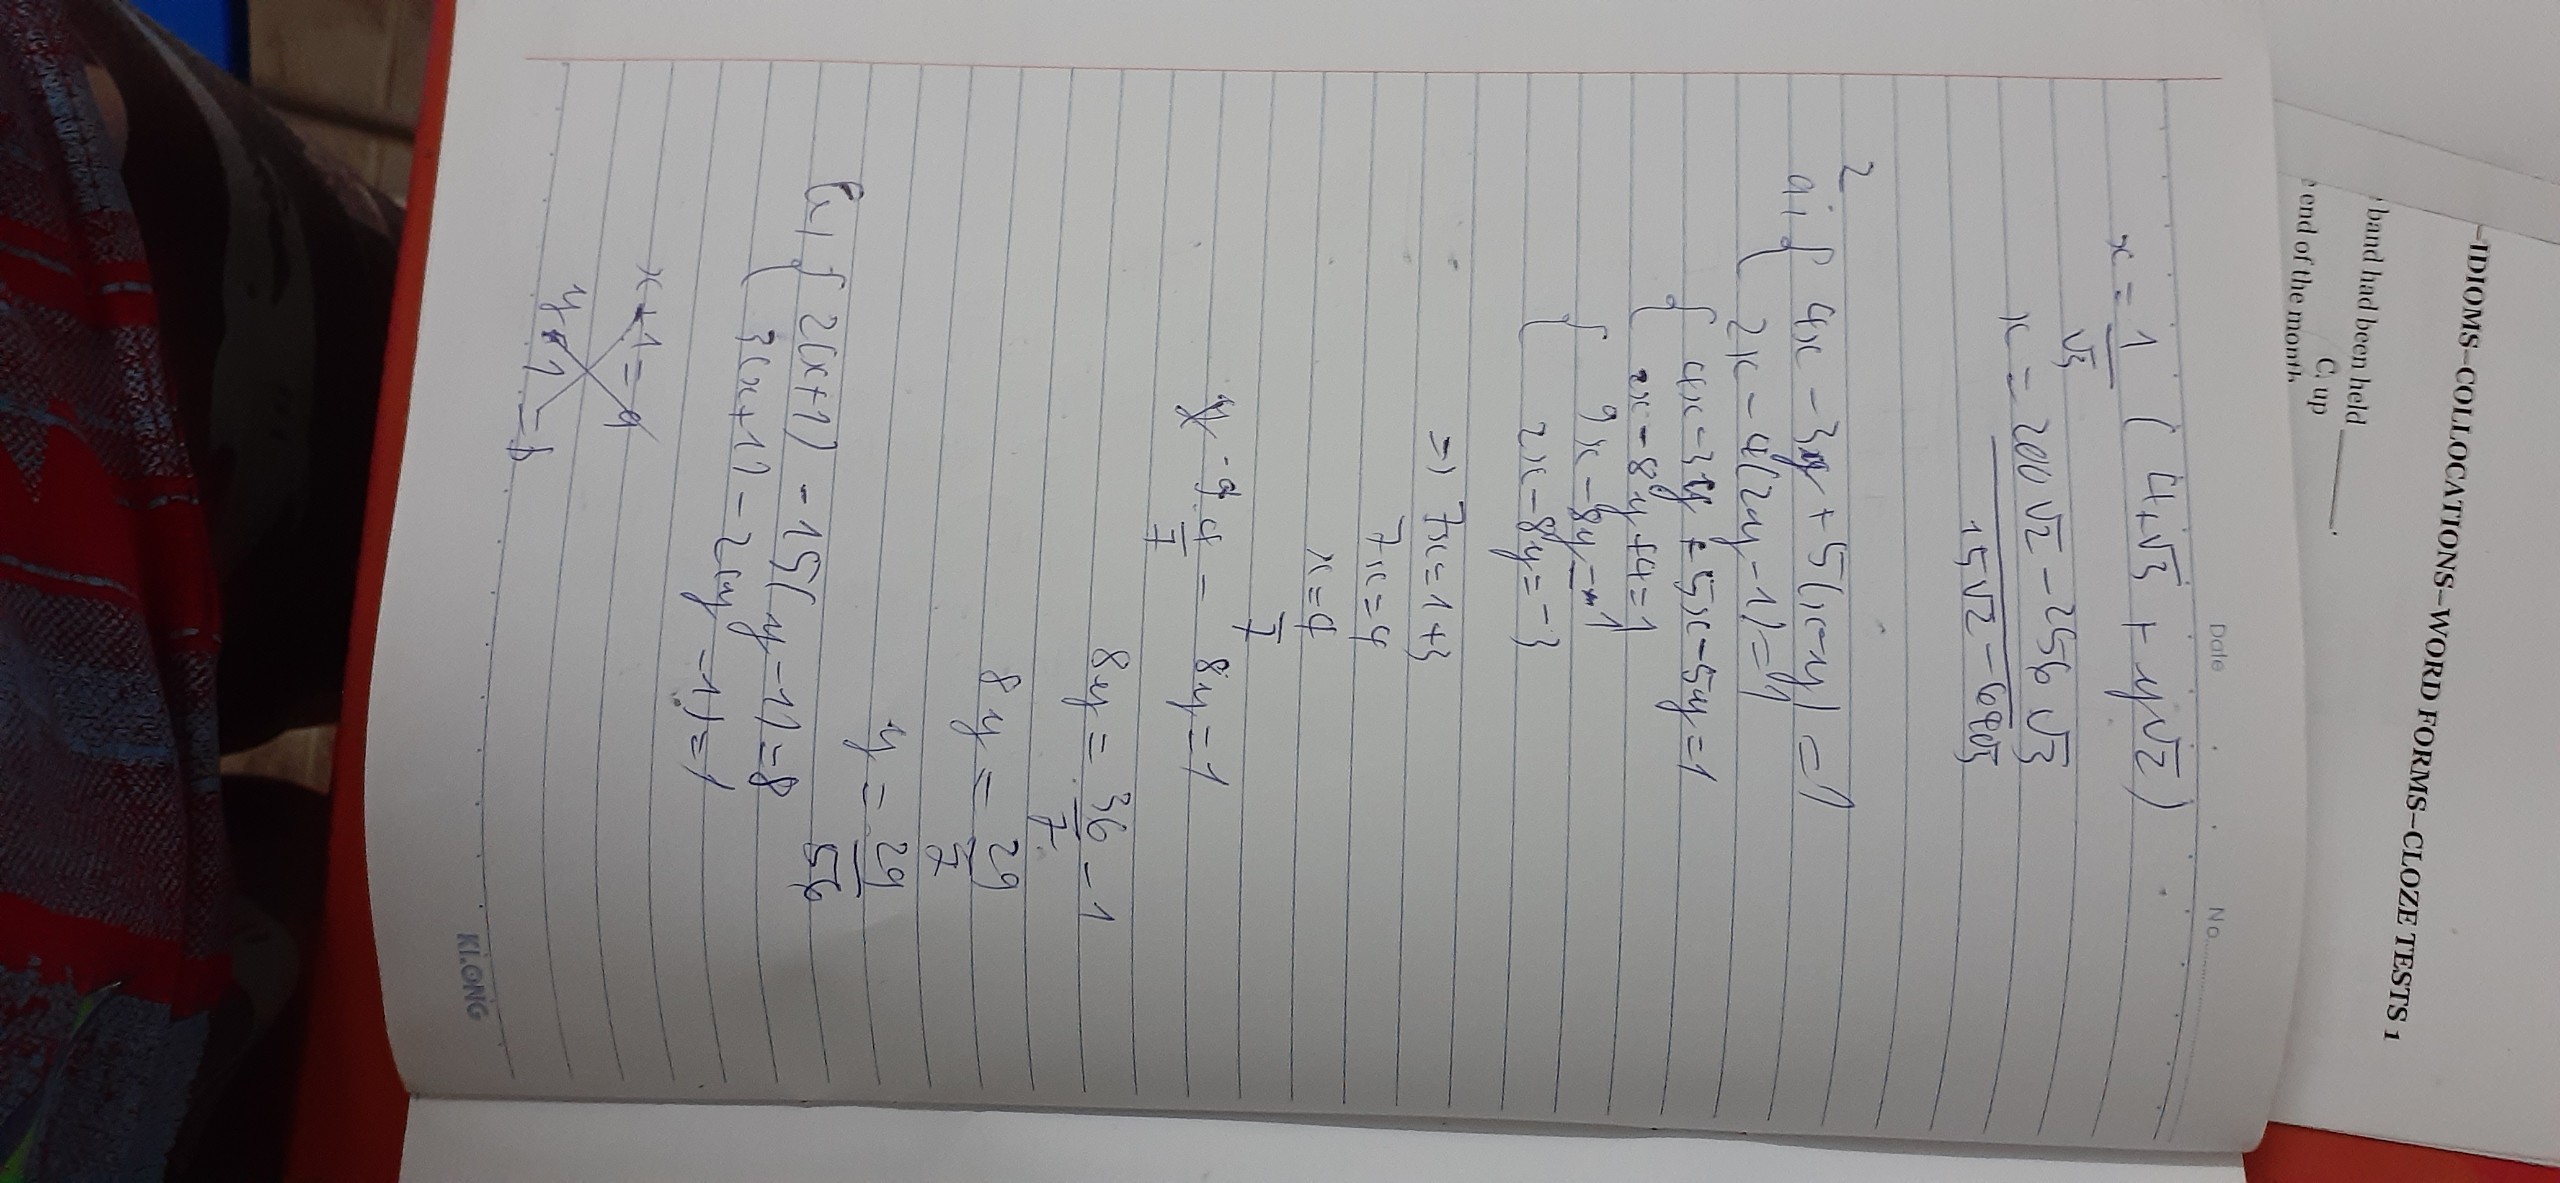 –IDIOMS–COLLOCATIONS–WORD FORMS–CLOZE TESTS 1
band had been held ______.
C. up
end of the month
Date No.
x = 1/√3 (4√3 + y√2)
x = (200√2 - 256√3)/(15√2 - 68√3)
2
a, { 4x - 3y + 5(x-y) = 1
2x - 4(2y - 1) = 1
{ 4x - 3y + 5x - 5y = 1
2x - 8y + 4 = 1
{ 9x - 8y = 1
2x - 8y = -3
=> 7x = 1+3
7x = 4
x = 4/7
9.4/7 - 8y = 1
8y = 36/7 - 1
8y = 29/7
y = 29/56
{ 2(x+1) - 15(y-1) = 8
3(x+1) - 2(y-1) = 1
x+1 = a
y-1 = b
KI.ONG